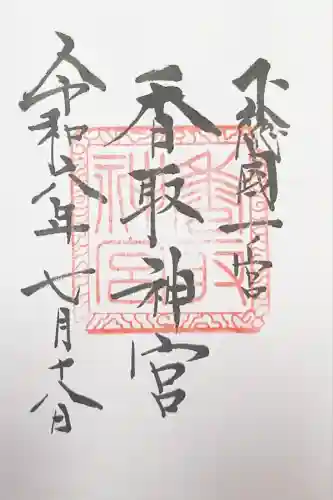 下総國一之宮
香取神宮
令和六年七月十八日
香取神宮